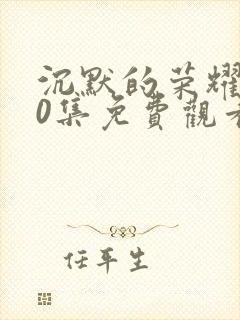 沉默的荣耀
0集免費觀看
任平生